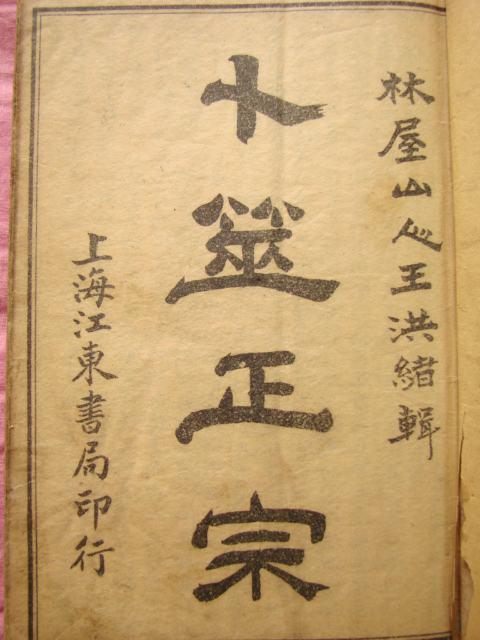 林屋山人王洪緒輯
卜筮正宗
上海江東書局印行